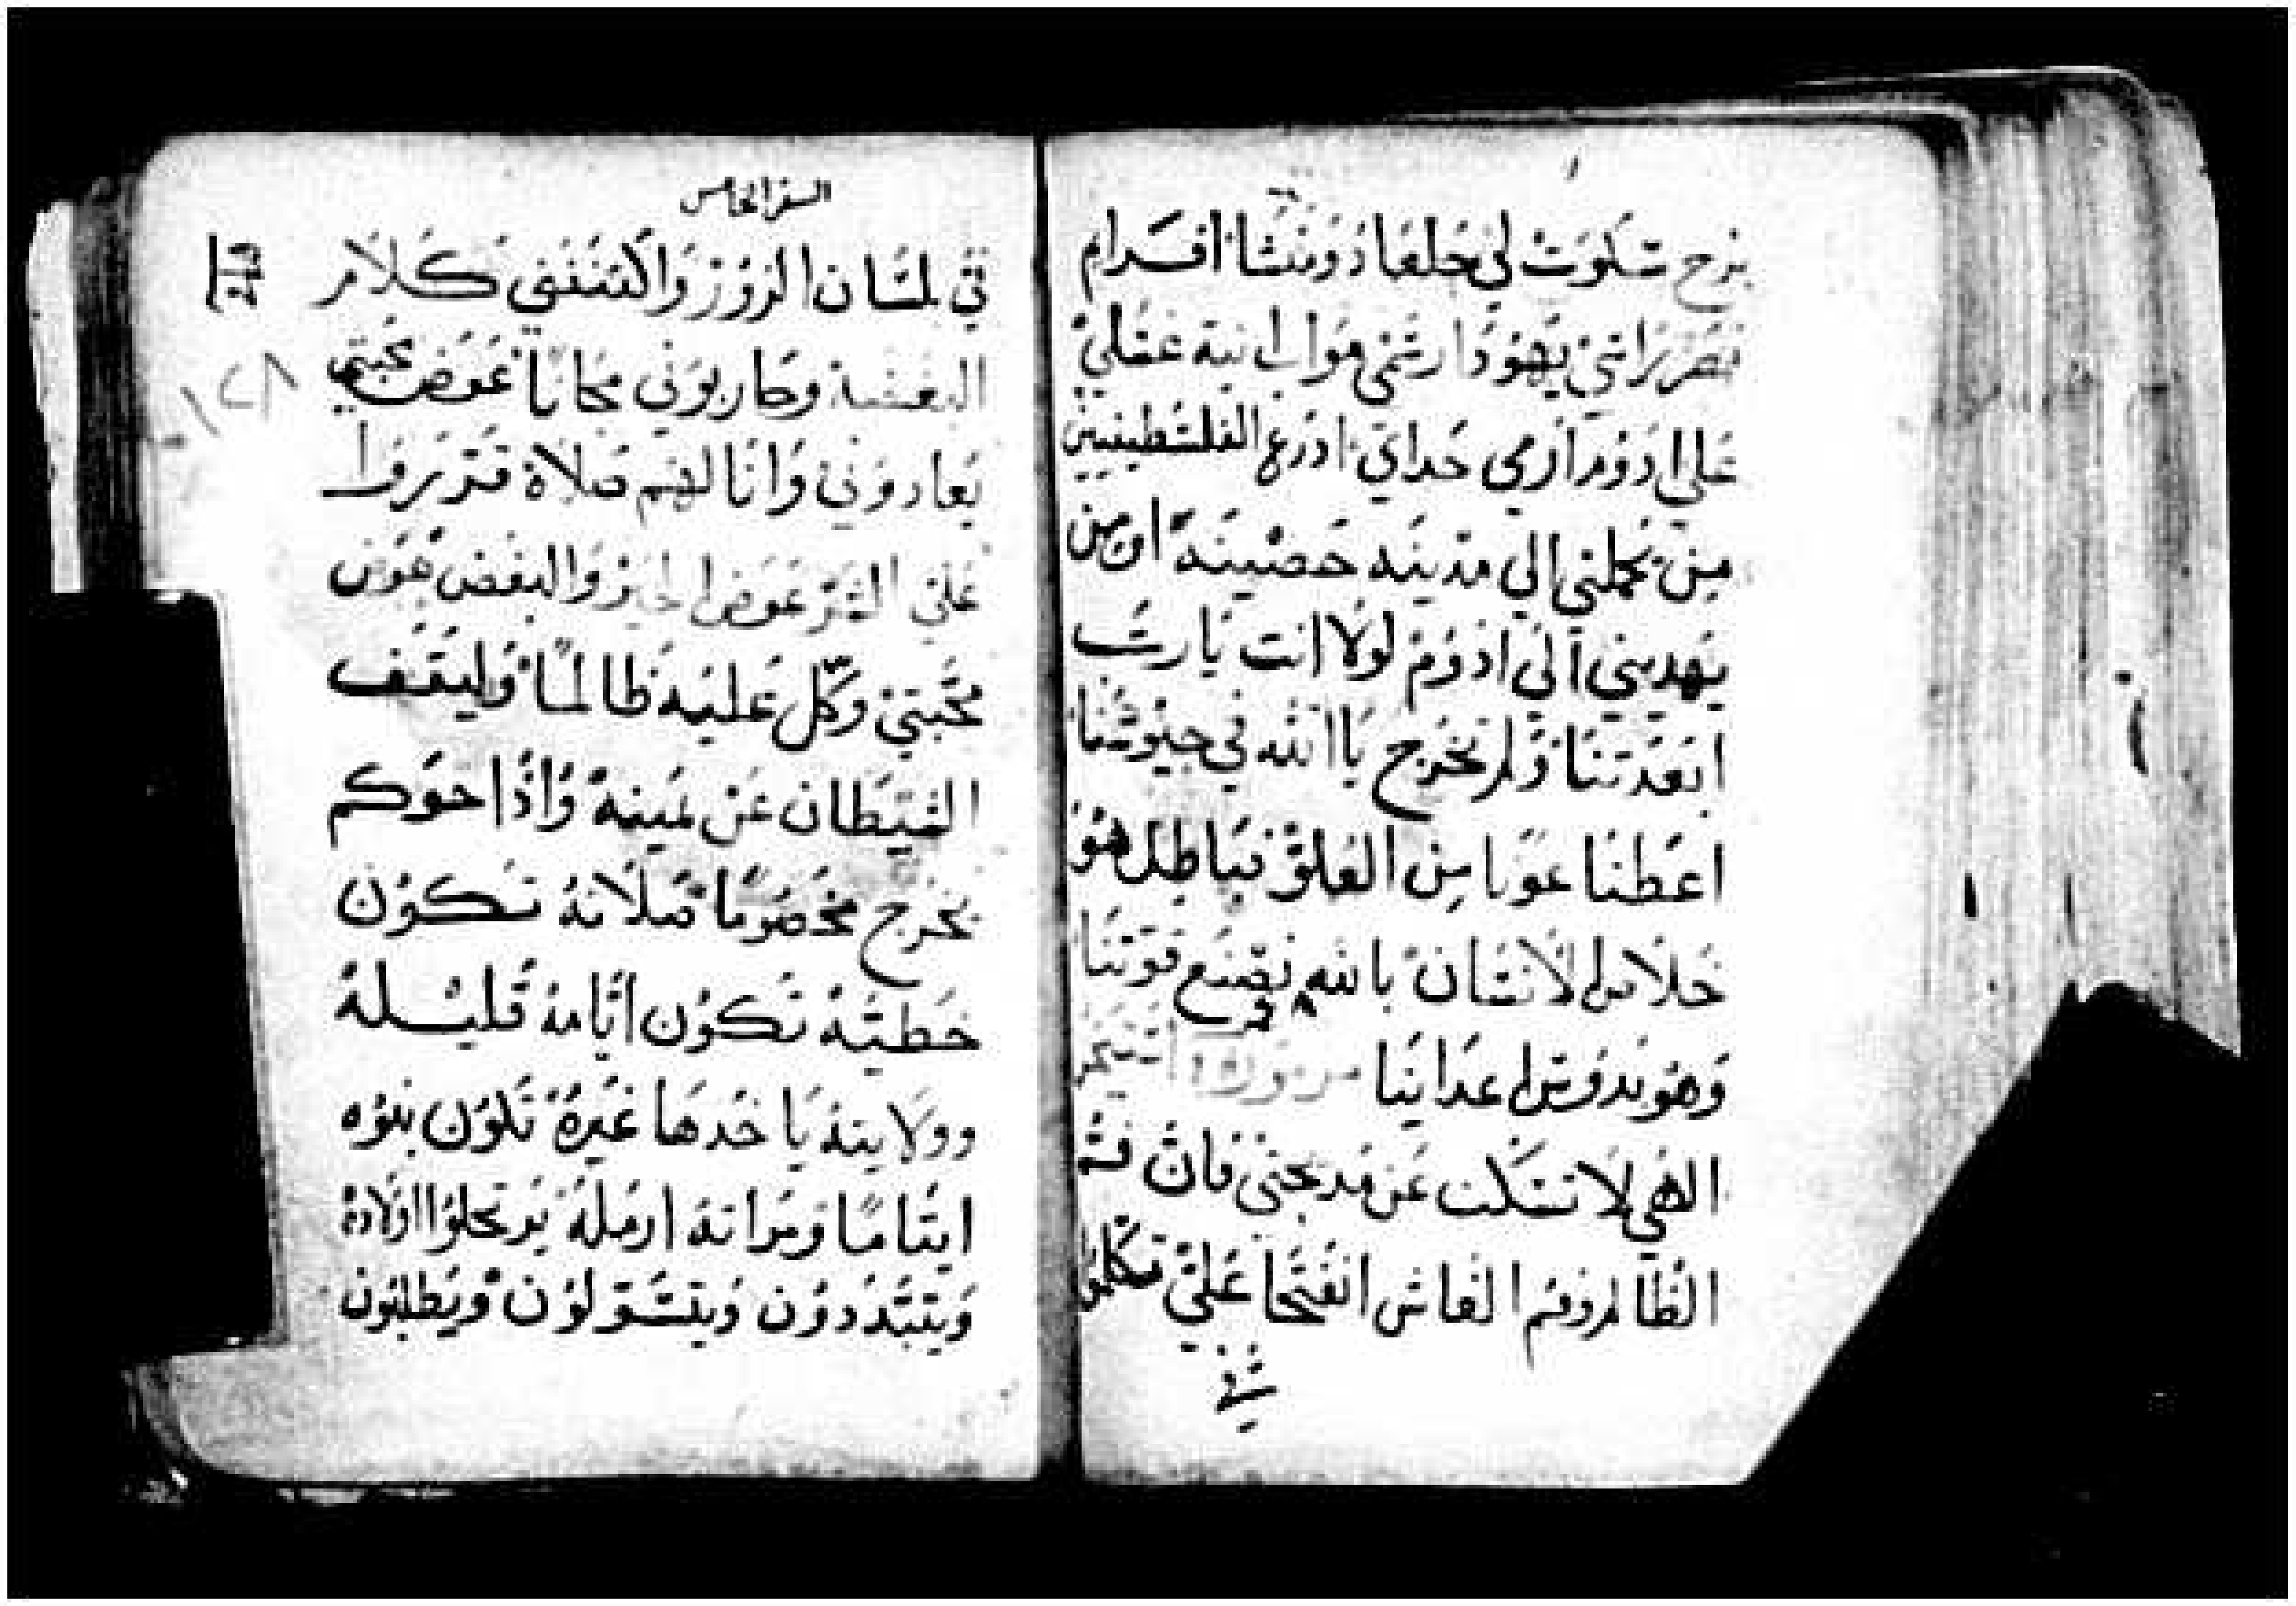 بزح سكوت لي جلعاد ومنشا افرام
نصر راسي يهودا رسمي مواب انية غسلي
علي ادوم ارمي حداي ادرع الفلسطينيين
من يحملني الي مدينه حصينة او من
يهديني الي ادوم لولا انت يا رب
ابعدتنا ولم تخرج يا الله في جيوشنا
اعطنا عونا من العلو فباطل هو
خلاص الانسان بالله نصنع قوتنا
وهو يدوس اعداينا
الهي لا تسكت عن مدحتي فان فم
الظالم وفم الغاش انفتحا علي تكلمو
السفر الخامس
في لسان الزور واكتنفني كلام
البغضة وحاربوني مجانا عوض محبتي
يعادوني وانا لهم صلاة قرروا
علي الشر عوض الخير والبغض عوض
محبتي وكل عليه ظالما وليقف
الشيطان عن يمينه واذا حوكم
يخرج مخصوما صلاته تكون
خطيه تكون ايامه قليله
وولايته ياخدها غيره تكون بنوه
ايتاما ومراته ارملة يرتحلوا اولاده
ويتبددون ويتسولون ويطلبون